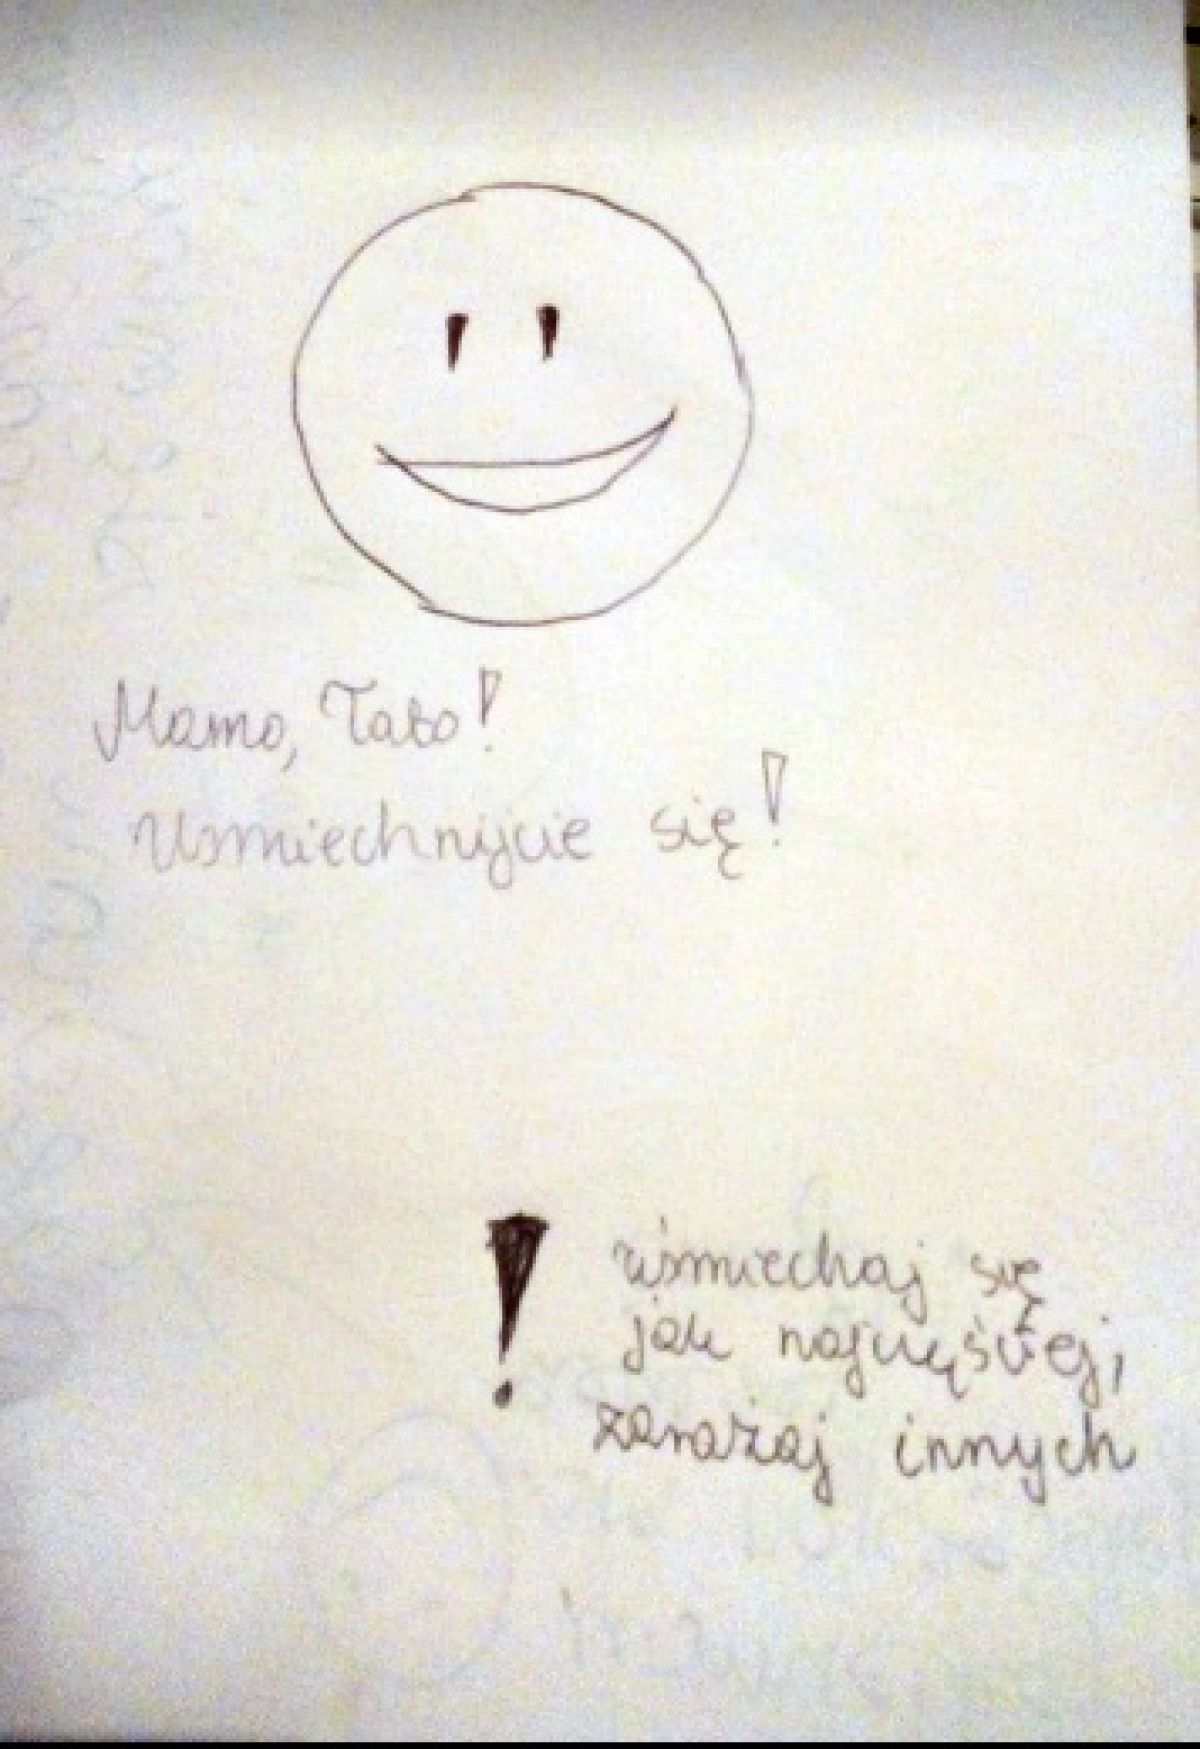 Mamo, Tato!
Usmiechnijcie się!
! uśmiechaj się
jak najczęściej,
zarażaj innych